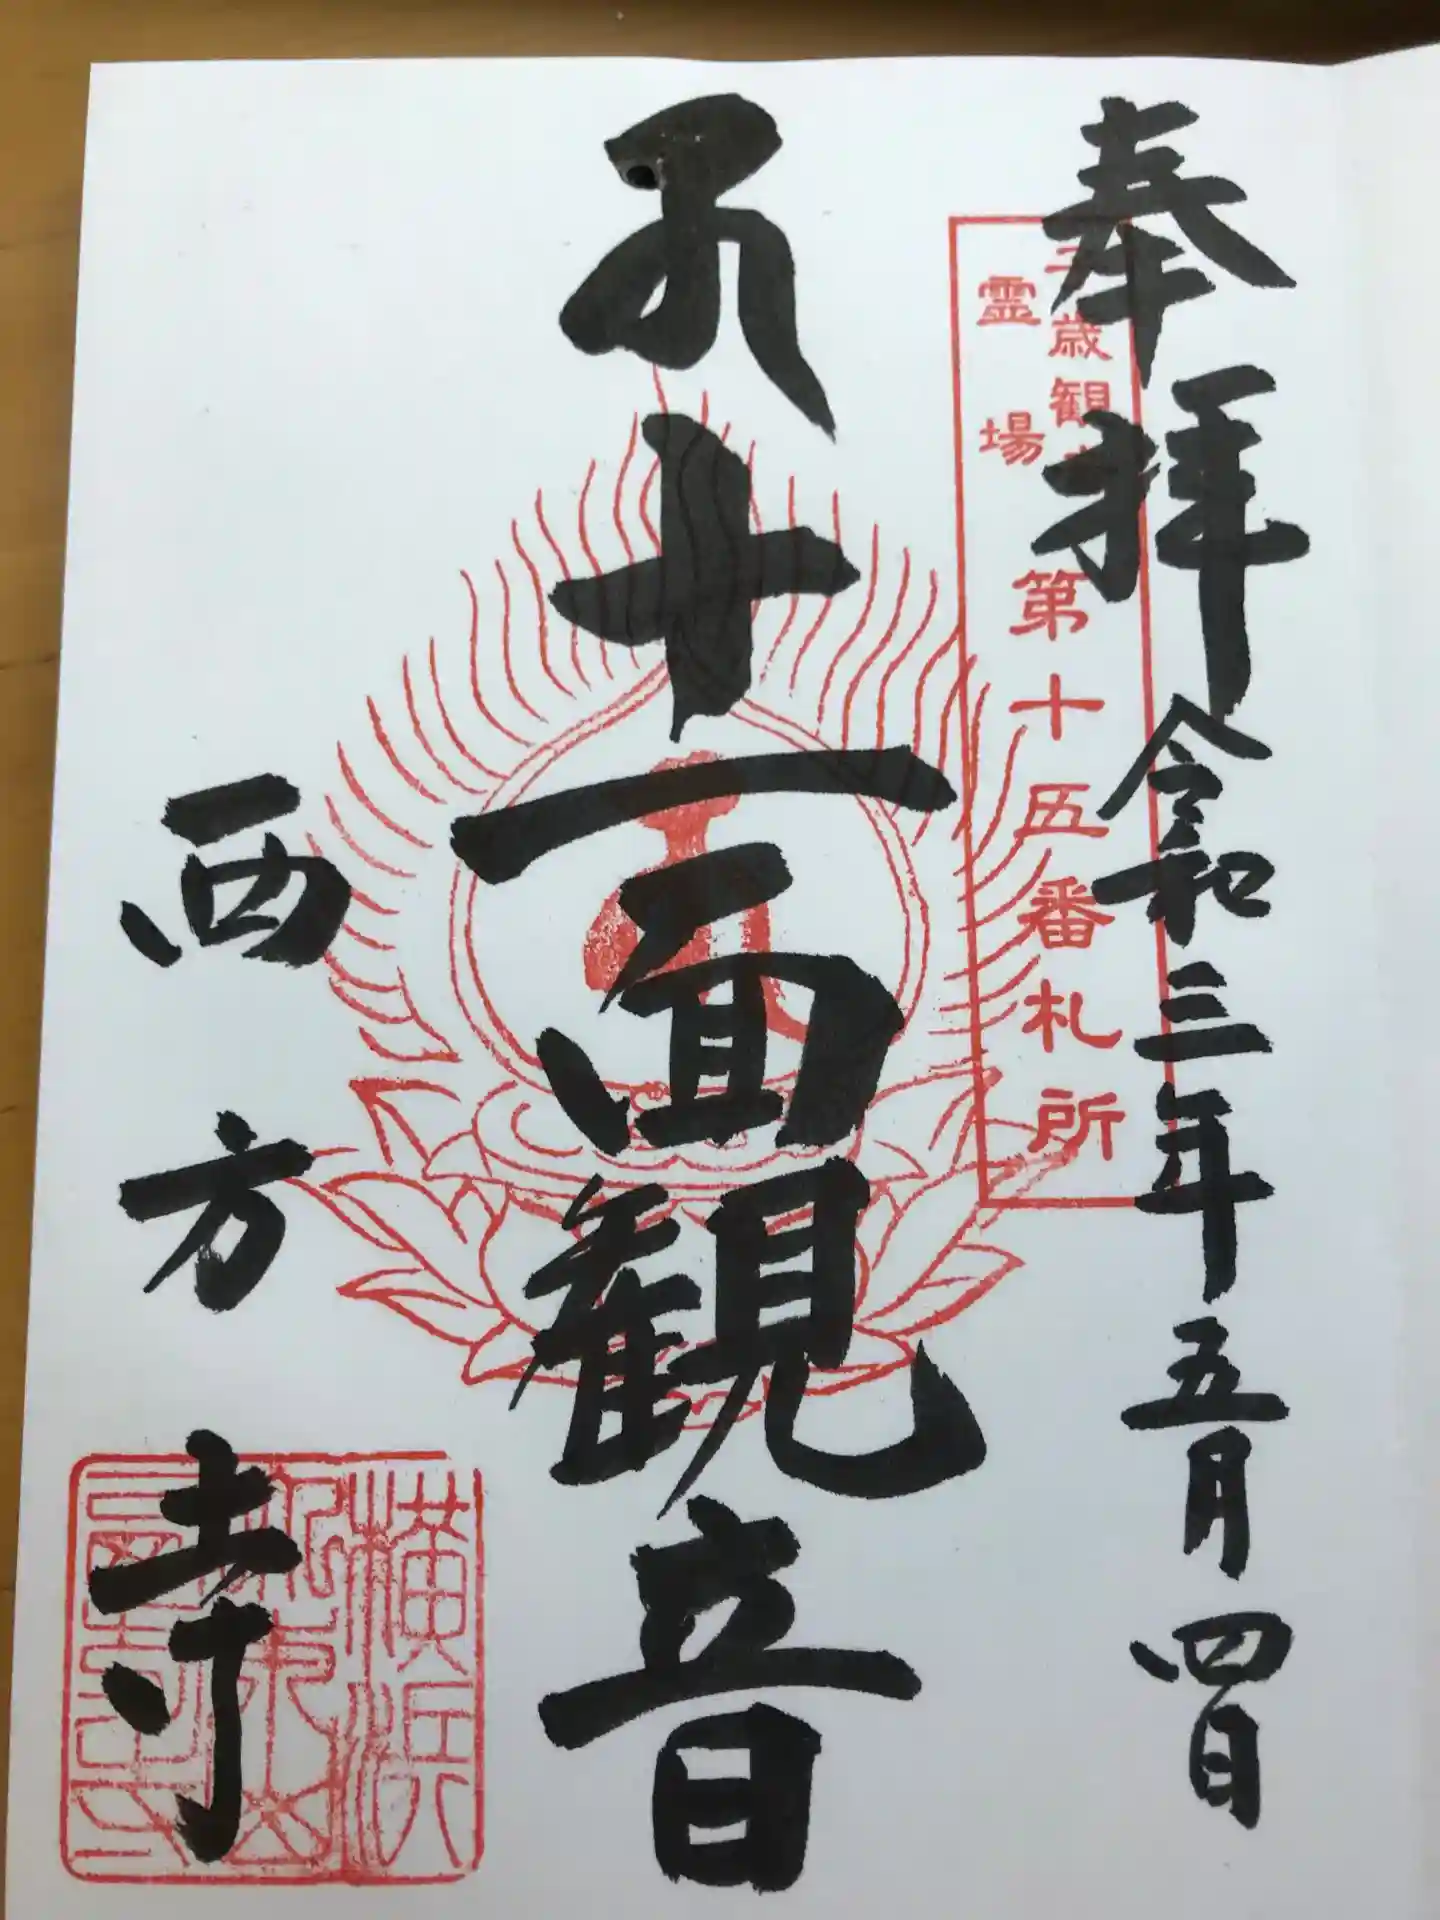 奉拝 令和三年五月四日
子歳観音
霊場
第十五番札所
十一面観音
西方寺
横浜